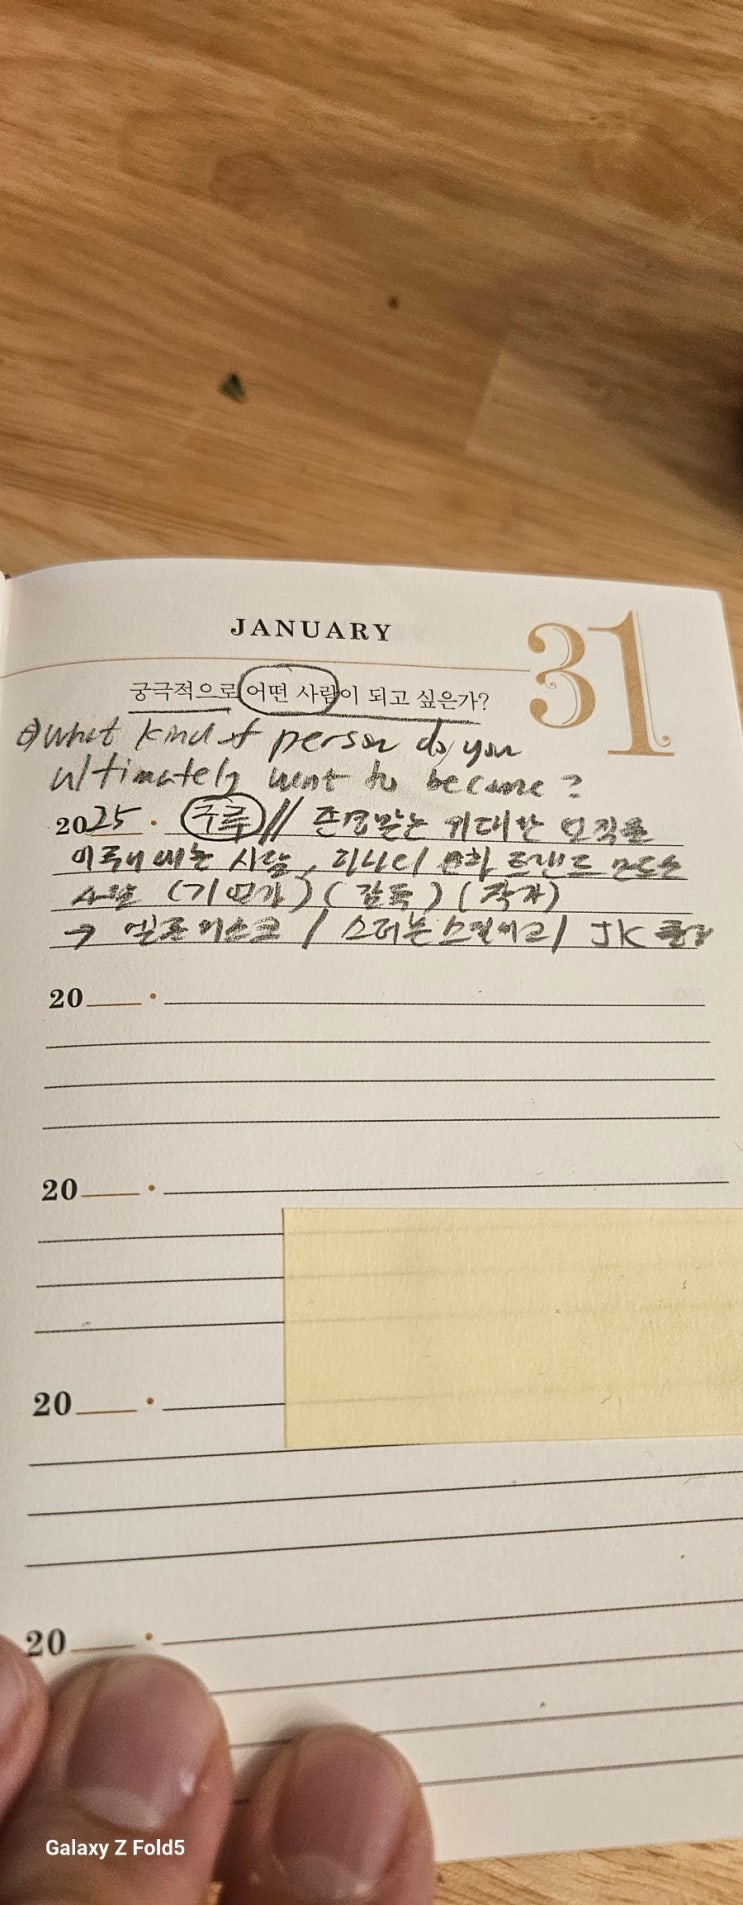 JANUARY
31
궁극적으로 어떤 사람이 되고 싶은가?
what kind of person do you
ultimately want to become?
2025 · 구루 // 존경받는 위대한 조직을
이루어내는 사람, 문화 트랜드 만드는
사람 (기업가) (감독) (작자)
→ 일론머스크 / / JK 롤링
20 ·
20 ·
20 ·
20 ·
Galaxy Z Fold5